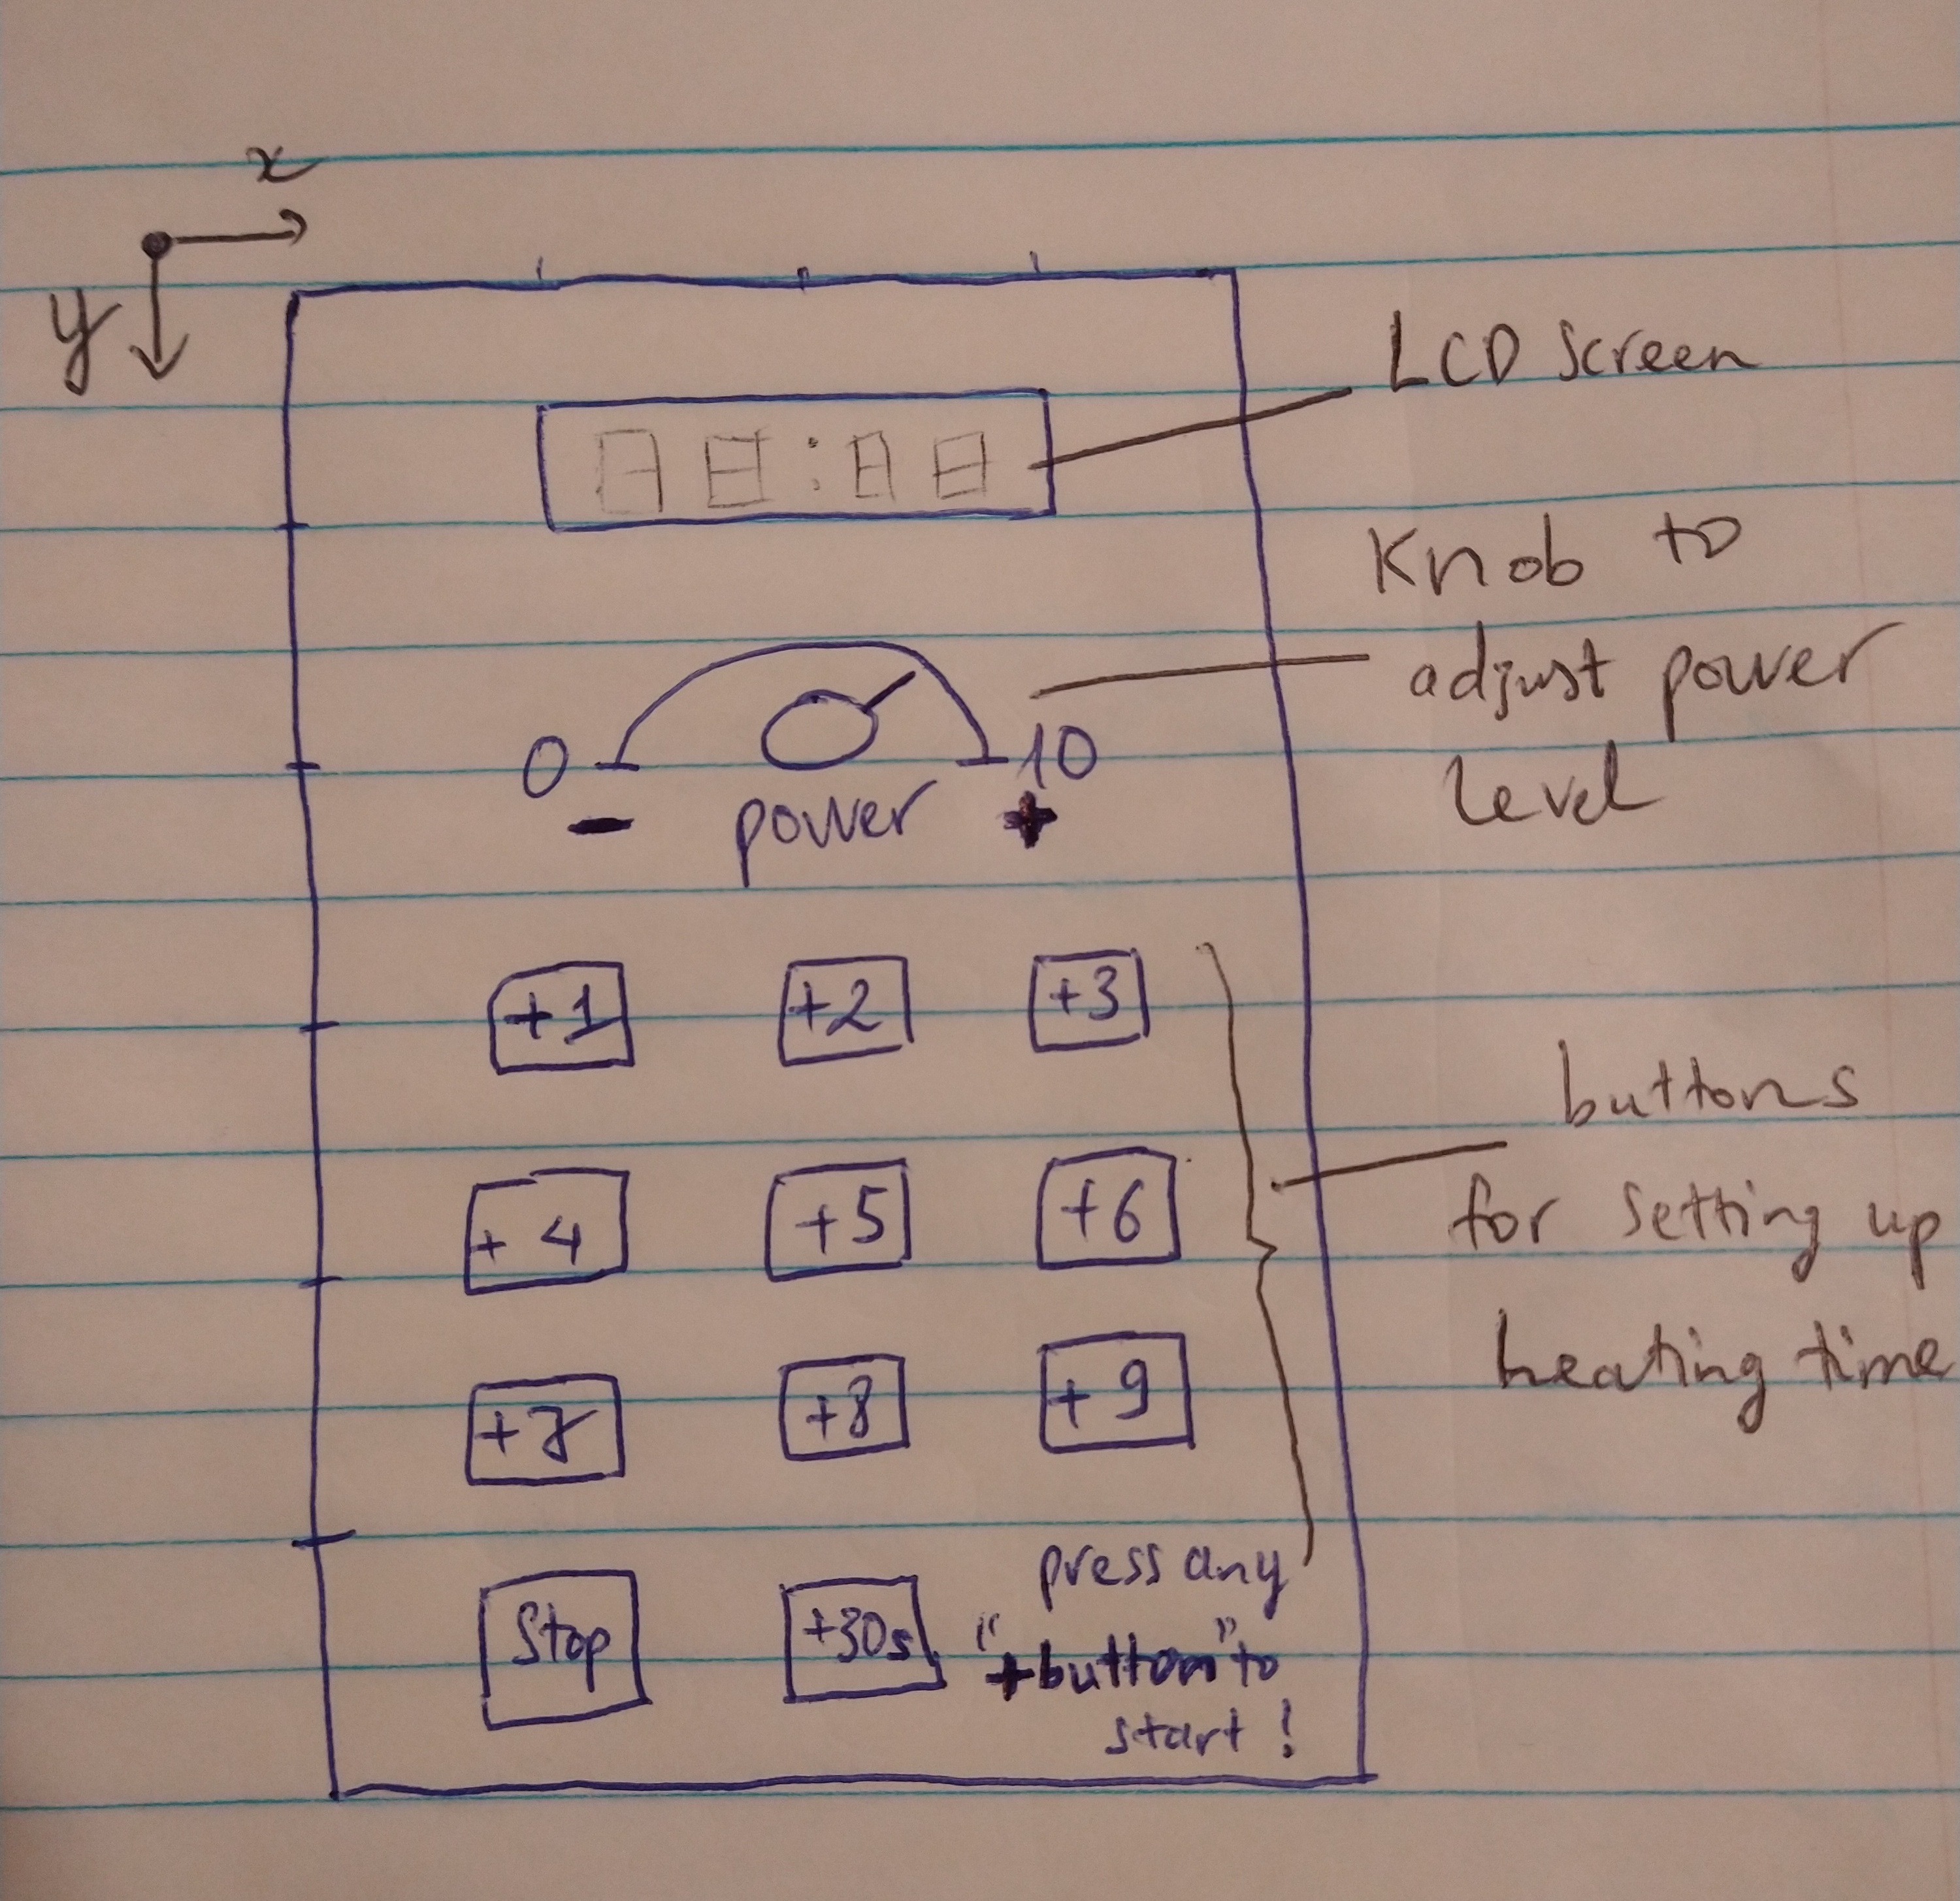 x
y
LCD Screen
Knob to
adjust power
level
0 10
- power +
+1 +2 +3
+4 +5 +6
+7 +8 +9
buttons
for setting up
heating time
Stop +30s
press any
"+button" to
start!